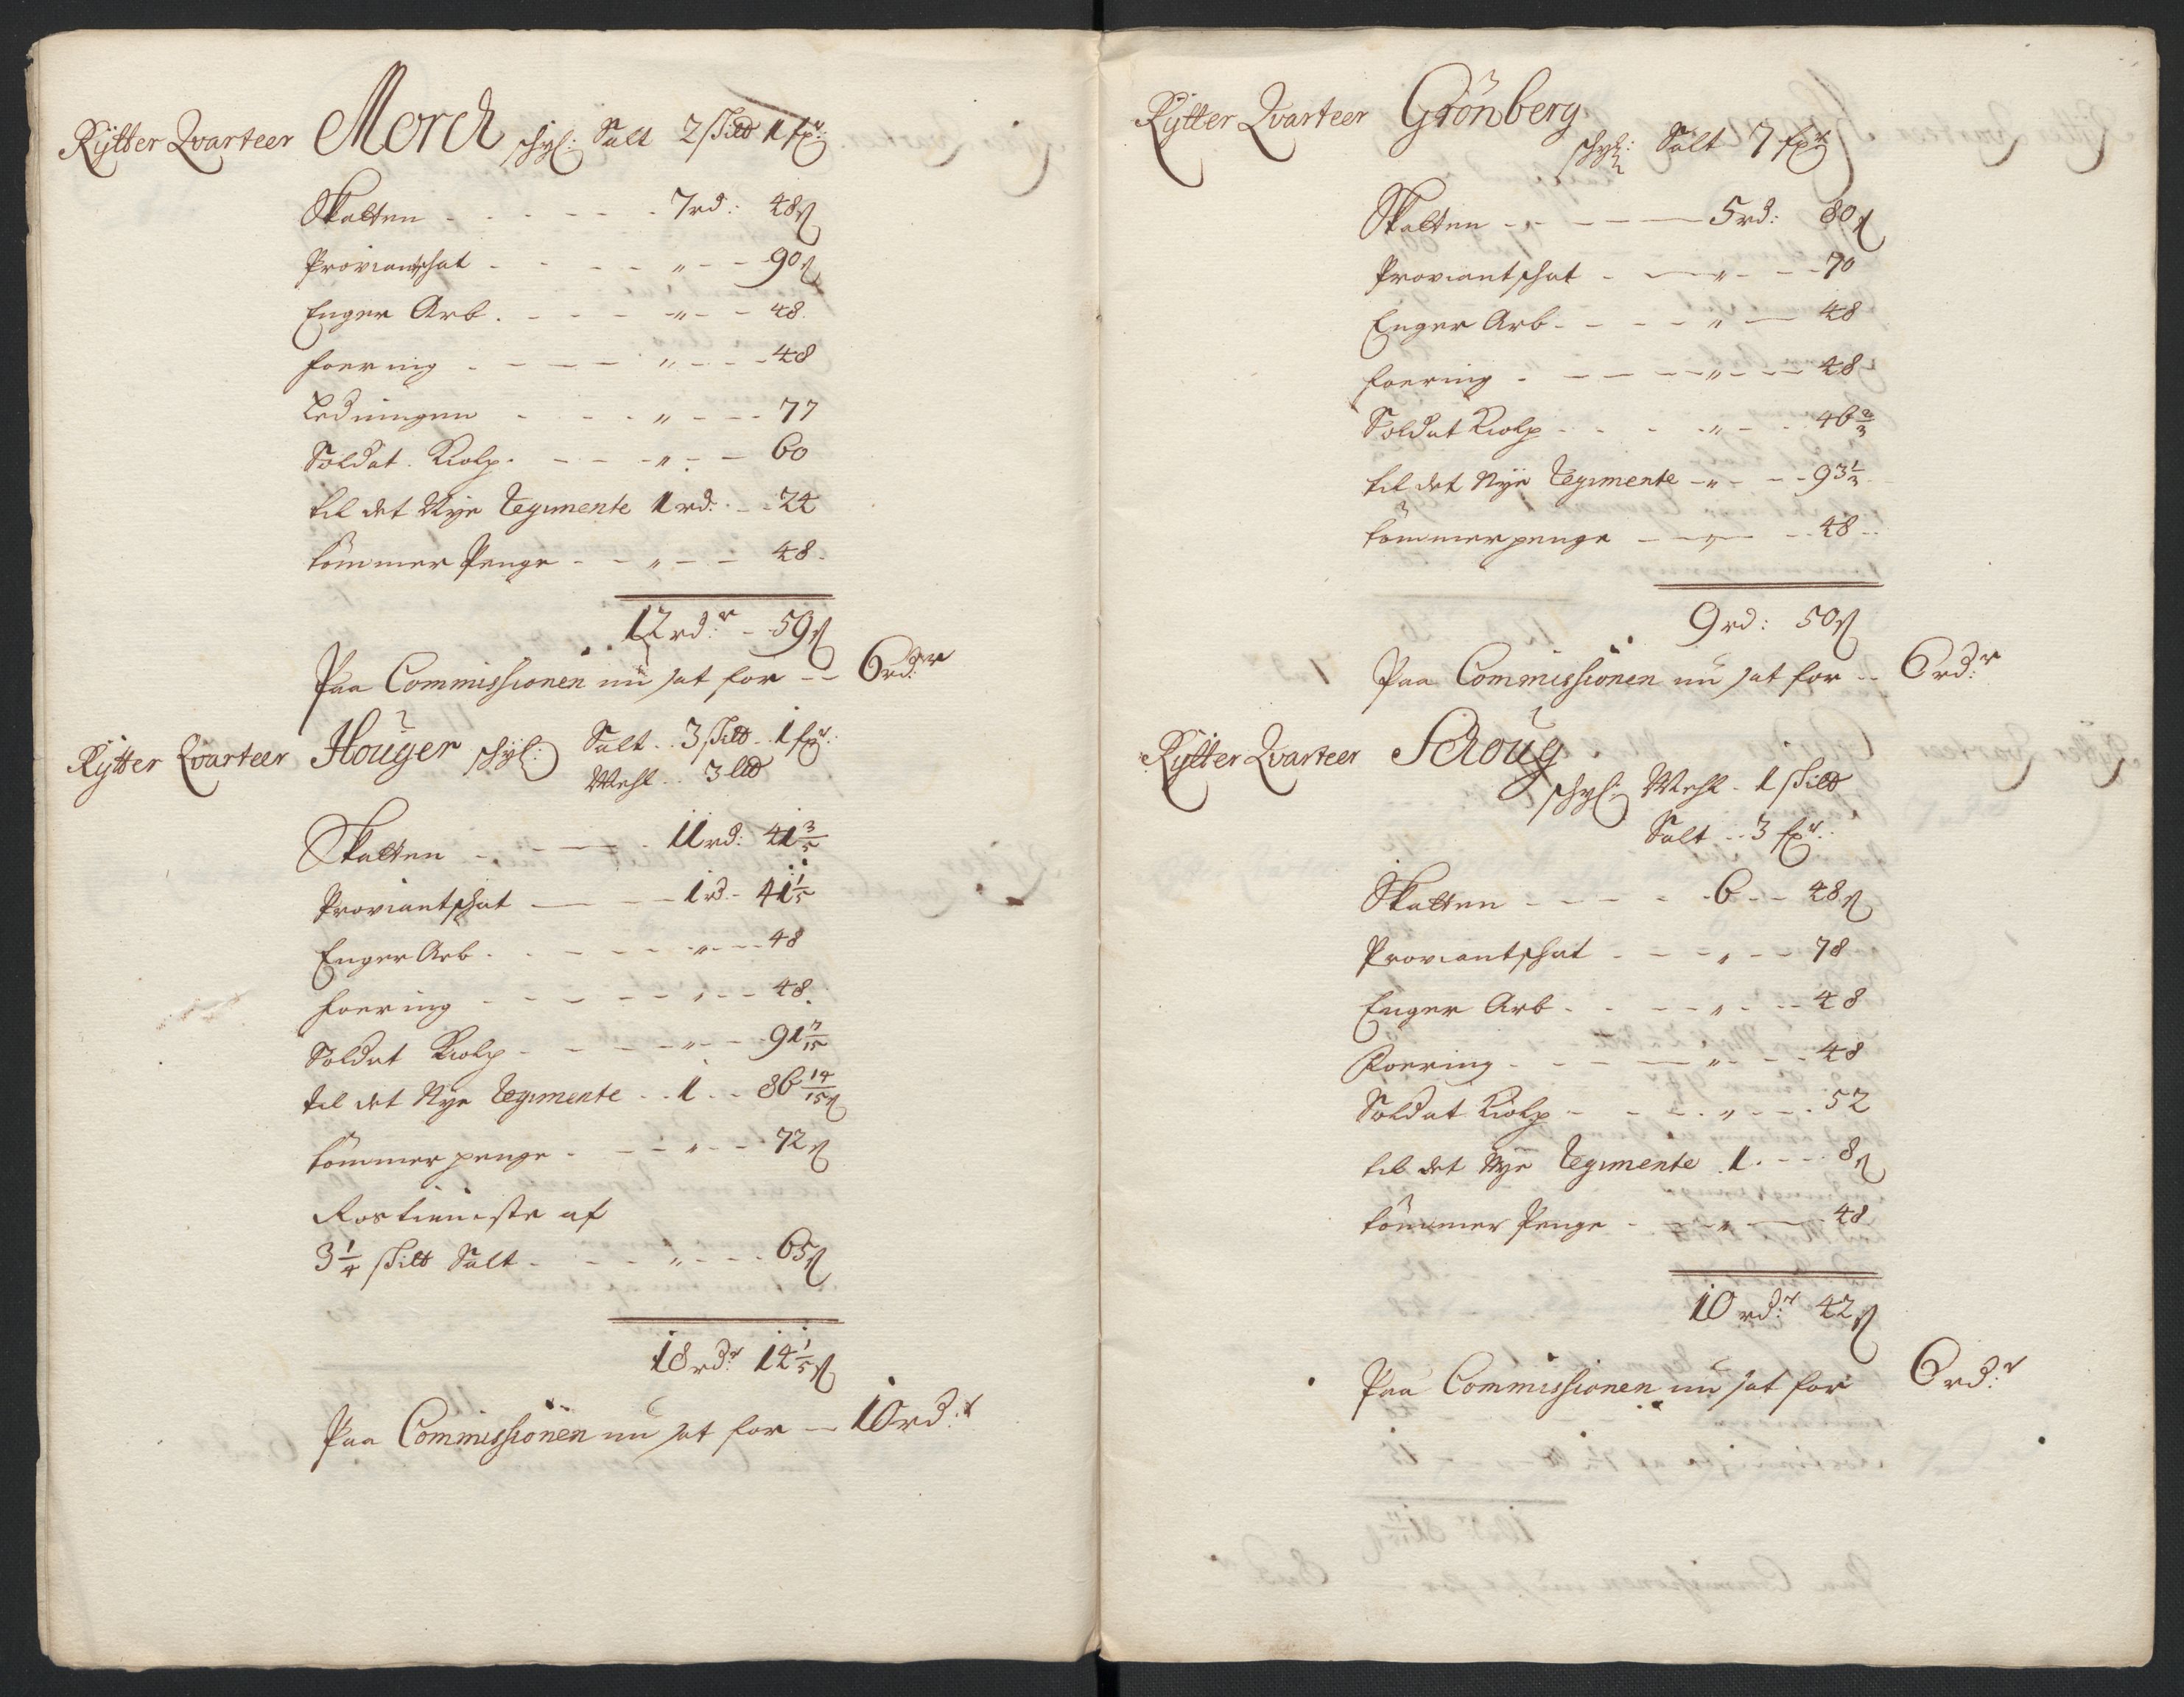 Rytter Qvarteer Morck skyl: Salt 2 skild 1 fxr:
Skatten - - - - - - 7rd: 48ß
Proviantskat - - - - „ - - 90ß
Enger Arb. - - - - „ - - 48.
foering - - - - „ - - - 48
Ledningen - - - „ - - - 77
Soldat. Kiolp. - - - „ - - 60
til det Nye Regimente 1 rd: - - 24
tömmer Penge - - „ - - 48.
12 rd:r - 59ß
Paa Commissionen nu sat for - - 6rd:r
Rytter Qvarteer Houger skyl: Salt . . 3 skild - 1 fxr:
Mehl . . 3 lld
Skatten - - - - 11rd: 41 3/5
Proviantskat - - - 1 rd - 41 1/5
Enger Arb. - - - - „ - - - 48
foering - - - - - „ - - 48.
Soldat Kiolp - - - - „ - - 91 7/15
til det Nye Regimente . . 1 . - 86 14/15ß
tömmer penge - - - „ - - 72ß
Rostieniste af
3 1/4 skild Salt - - - - „ - - - 65ß
18rd:r 14 1/5ß
Paa Commissionen nu sat for - 10rd:r
Rytter Qvarteer Grönberg
skyl: Salt 7 fxr
Skatten - - - - - 5rd: 80ß
Proviantskat - - „ - - - 70
Enger Arb - - - - „ - 48
foering - - - - - „ - - 48
Soldat Kiolp - - - - „ - - 46 2/3
til det Nye Regimente - „ - - - 93 1/3
tömmerpenge - - „ - - - 48 - -
9rd: 50ß
Paa Commissionen nu sat for - - 6rd:r
Rytter Qvarteer Schoug
skyl: Mehl - 1 skild
Salt . - 3 fxr:
Skatten - - - - - 6 - - 48ß
Proviantskat - - - „ - - 78
Enger Arb. - - - - „ - - - 48
Foering - - - - - „ - - - 48
Soldat Kiolp - - - - „ - - - 52
til det Nye Regimente 1. - - - 8ß
tömmer Penge - - - „ - - 48
10 rd:r 42ß
Paa Commissionen nu sat for 6 rd:r